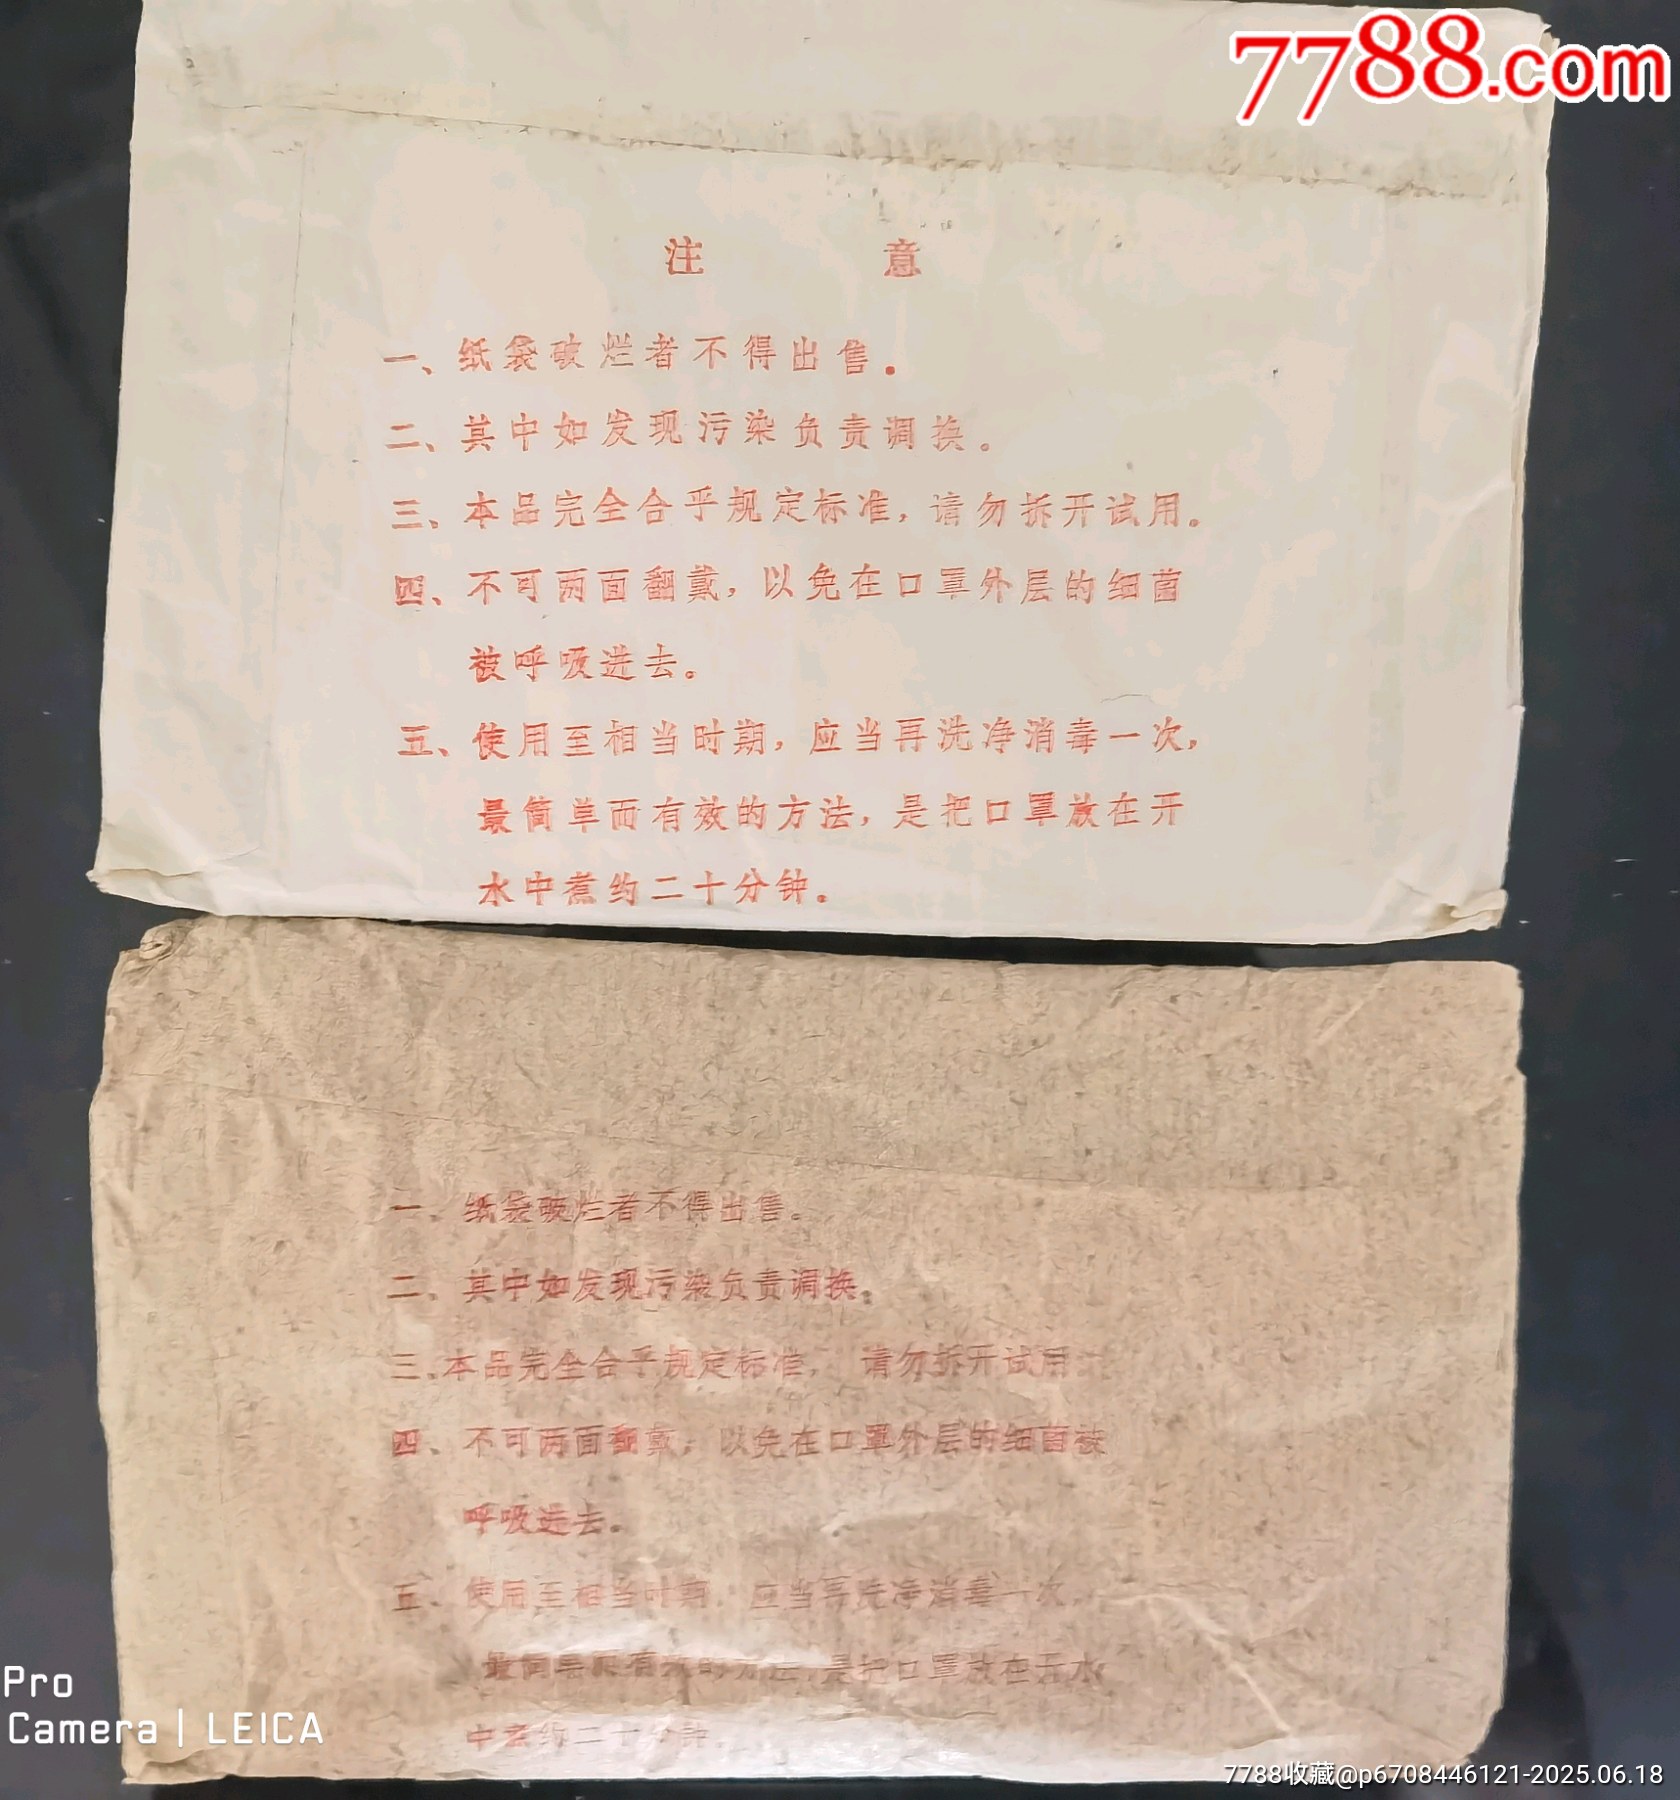 7788.com
注 意
一、纸袋破烂者不得出售。
二、其中如发现污染负责调换。
三、本品完全合乎规定标准，请勿拆开试用。
四、不可两面翻戴，以免在口罩外层的细菌
被呼吸进去。
五、使用至相当时期，应当再洗净消毒一次，
最简单而有效的方法，是把口罩放在开
水中煮约二十分钟。
一、纸袋破烂者不得出售。
二、其中如发现污染负责调换。
三、本品完全合乎规定标准， 请勿拆开试用
四、不可两面翻戴，以免在口罩外层的细菌被
呼吸进去。
五、使用至相当时期，应当再洗净消毒一次，
最简单而有效的方法，是把口罩放在开水
中煮约二十分钟。
Pro
Camera | LEICA
7788收藏@p6708446121-2025.06.18